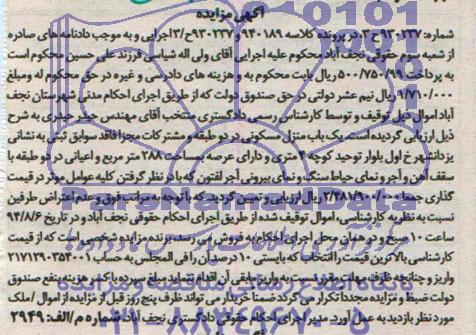 آگهی مزایده
شماره: ۹۳۰۲۳۷ ح ۳، در پرونده کلاسه ۹۴۰۱۸۹ و ۹۳۰۲۳۷ح/۳ اجرایی و به موجب دادنامه های صادره
از شعبه سوم حقوقی نجف آباد محکوم علیه اجرایی آقای ولی اله شیاسی فرزند علی حسین محکوم است
به پرداخت ۵۰۰/۷۵۰/۹۹ ریال بابت محکوم به و هزینه های دادرسی و غیره در حق محکوم له و مبلغ
۱/۷۱۰/۰۰۰ ریال نیم عشر دولتی در حق صندوق دولت که از طریق اجرای احکام مدنی شهرستان نجف
آباد اموال ذیل توقیف و توسط کارشناس رسمی دادگستری منتخب آقای مهندس حیدر حیدری به شرح
ذیل ارزیابی گردیده است. یک باب منزل مسکونی در دو طبقه و مشترکات مجزا فاقد سوابق ثبتی به نشانی
یزدانشهر خ اول بلوار توحید کوچه ۴ متری و دارای عرصه بمساحت ۲۸۸ متر مربع و اعیانی در دو طبقه با
سقف آهن و آجر و نمای حیاط سنگ و نمای بیرونی آجر لفتون که با در نظر گرفتن کلیه عوامل موثر در قیمت
گذاری جمعا ۲/۴۸۷/۹۰۰/۰۰۰ ریال ارزیابی و تعیین گردید که با توجه به مراتب فوق و عدم اعتراض طرفین
نسبت به نظریه کارشناسی، اموال توقیف شده از طریق اجرای احکام حقوقی نجف آباد و در تاریخ ۹۴/۸/۶
ساعت ۱۰ صبح و در همان محل اجرای احکام به فروش می رسد. برنده مزایده شخصی است که از قیمت
کارشناسی بالاترین قیمت را انتخاب که بایستی ۱۰ درصد آن را فی المجلس به حساب ۲۱۷۱۲۹۰۳۵۴۰۰۱
واریز و چنانچه ظرف مهلت مقرر نسبت به واریز مابقی آن اقدام ننماید مبلغ سپرده با کسر هزینه بنفع صندوق
دولت ضبط و مزایده مجددا تکرار می گردد ضمنا خریدار می تواند ظرف پنج روز قبل از مزایده از اموال / ملک
مورد نظر بازدید به عمل آورد. مدیر اجرای احکام حقوقی دادگستری نجف آباد شماره م/الف: ۲۹۴۹